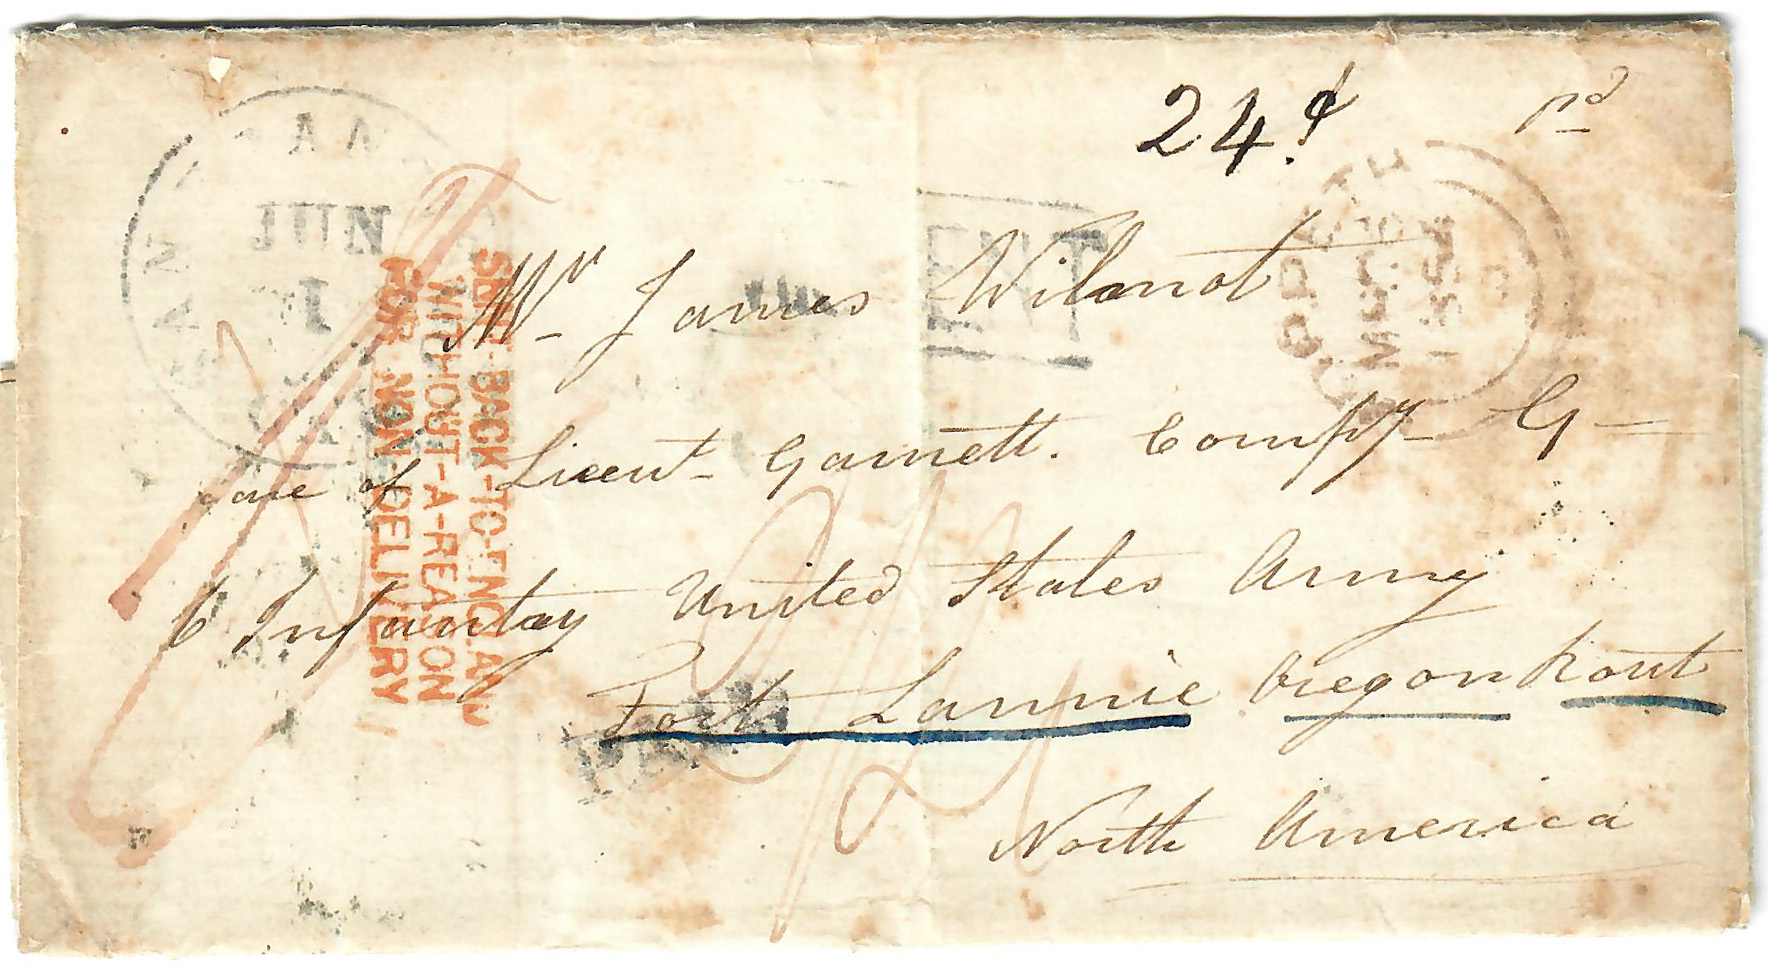 24 pd
JUN
1
CAL
Mr James Wilmot
care of Lieut Garnett. Compy G
6 Infantry United States Army
Fort Larimie Oregon Rout
North America
PAID
SENT-BACK-TO-ENGLAND
WITHOUT-A-REASON
FOR NON-DELIVERY